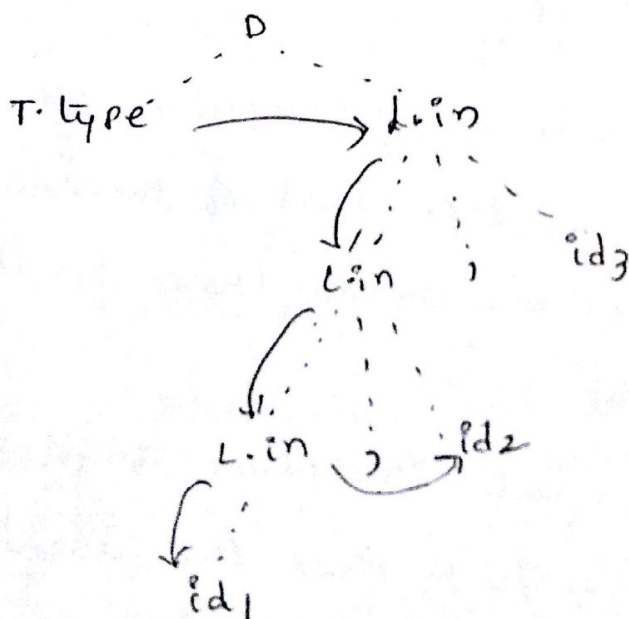 D
T.type L.in
L.in , id3
L.in , id2
id1